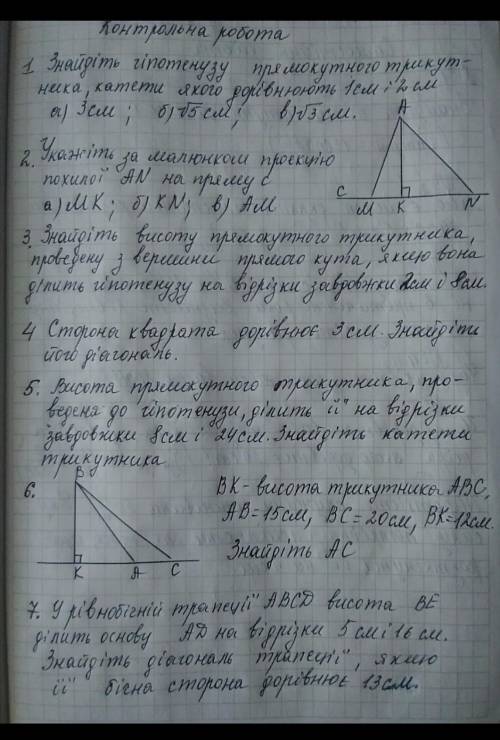 Контрольна робота
1 Знайдіть гіпотенузу прямокутного трикут-
ника, катети якого дорівнюють 1см і 2см
а) 3см; б) √5 см; в) √3 см.
A
2. Укажіть за малюнком проєкцію
похилої AN на пряму c
а) MK; б) KN; в) AM
C M K N
3. Знайдіть висоту прямокутного трикутника,
проведену з вершини прямого кута, якщо вона
ділить гіпотенузу на відрізки завдовжки 2см і 8см.
4 Сторона квадрата дорівнює 3 см. Знайдіть
його діагональ.
5. Висота прямокутного трикутника, про-
ведена до гіпотенузи, ділить її на відрізки
завдовжки 8см і 24см. Знайдіть катети
трикутника
6. B
K A C
BK - висота трикутника ABC,
AB = 15см, BC = 20см, BK = 12см.
Знайдіть AC
7. У рівнобічній трапеції ABCD висота BE
ділить основу AD на відрізки 5 см і 16 см.
Знайдіть діагональ трапеції, якщо
її бічна сторона дорівнює 13см.